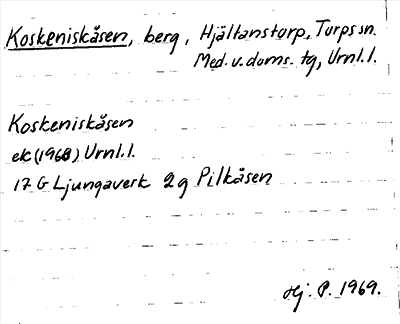 Koskeniskåsen, berg, Hjältanstorp, Torps sn.
Med. v. doms. tg, Urnl. l.
Koskeniskåsen
ek (1968) Urnl. l.
17 G Ljungaverk 2 g Pilkåsen
Hj. P. 1969.